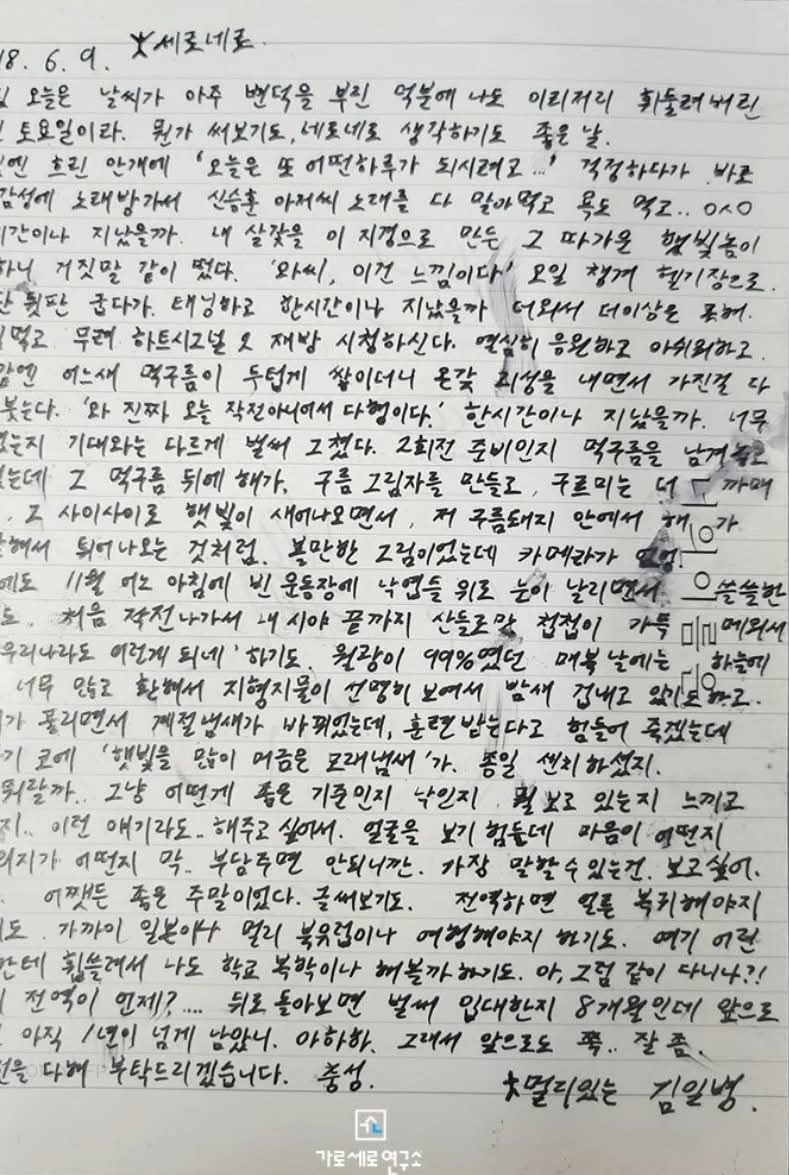 18. 6. 9. 세로네로.
오늘은 날씨가 아주 변덕을 부린 덕분에 나도 이리저리 휘둘려버린
토요일이라. 뭔가 써보기도, 세로네로 생각하기도 좋은 날.
엔 흐린 안개에 '오늘은 또 어떤하루가 되시려고...' 걱정하다가 바로
감성에 노래방가서 신승훈 아저씨 노래를 다 말아먹고 욕도 먹고.. ㅇㅅㅇ
시간이나 지났을까. 내 살갗을 이 지경으로 만든 그 따가운 햇빛놈이
하니 거짓말 같이 떴다. '와씨, 이건 느낌이다' 오일 챙겨 헬기장으로.
뒷판 굽다가. 태닝하고 한시간이나 지났을까 더워서 더이상은 못해.
먹고 무려 하트시그널 2 재방 시청하신다. 열심히 응원하고 아쉬워하고.
엔 어느새 먹구름이 두텁게 쌓이더니 온갖 괴성을 내면서 가진걸 다
붓는다. '와 진짜 오늘 작전아니어서 다행이다.' 한시간이나 지났을까. 너무
는지 기대와는 다르게 벌써 그쳤다. 2회전 준비인지 먹구름을 남겨놓고
는데 그 먹구름 뒤에 해가, 구름 그림자를 만들고, 구르미는 더 까매
. 그 사이사이로 햇빛이 새어나오면서, 저 구름돼지 안에서 해가
해서 튀어나오는 것처럼. 볼만한 그림이었는데 카메라가
에도 11월 어느 아침에 빈 운동장에 낙엽들 위로 눈이 날리면서 쓸쓸한
도. 처음 작전나가서 내 시야 끝까지 산들로만 첩첩이 가득 메워서
우리나라도 이렇게 되네' 하기도. 월광이 99%였던 매복 날에는 하늘에
너무 많고 환해서 지형지물이 선명히 보여서 밤새 겁내고 있기도하고.
가 풀리면서 계절냄새가 바뀌었는데, 훈련받는다고 힘들어 죽겠는데
기 코에 '햇빛을 많이 머금은 모래냄새'가. 종일 센치하셨지.
뭐랄까.. 그냥 어떤게 좋은 기준인지 낙인지 뭘 보고 있는지 느끼고
지.. 이런 얘기라도.. 해주고 싶어서. 얼굴을 보기 힘든데 마음이 어떤지
의지가 어떤지 막.. 부담주면 안되니깐. 가장 말할수있는건. 보고싶어.
. 어쨋든 좋은 주말이었다. 글써보기도. 전역하면 얼른 복귀해야지
도. 가까이 일본이나 멀리 북유럽이나 여행해야지 하기도. 여기 어린
한테 휩쓸려서 나도 학교 복학이나 해볼까하기도. 아, 그럼 같이 다니나?!
전역이 언제?.... 뒤로 돌아보면 벌써 입대한지 8개월인데 앞으로
아직 1년이 넘게 남았니. 아하하. 그래서 앞으로도 쭉.. 잘 좀.
을 다해 부탁드리겠습니다. 충성.
멀리있는 김일병.
가로세로연구소